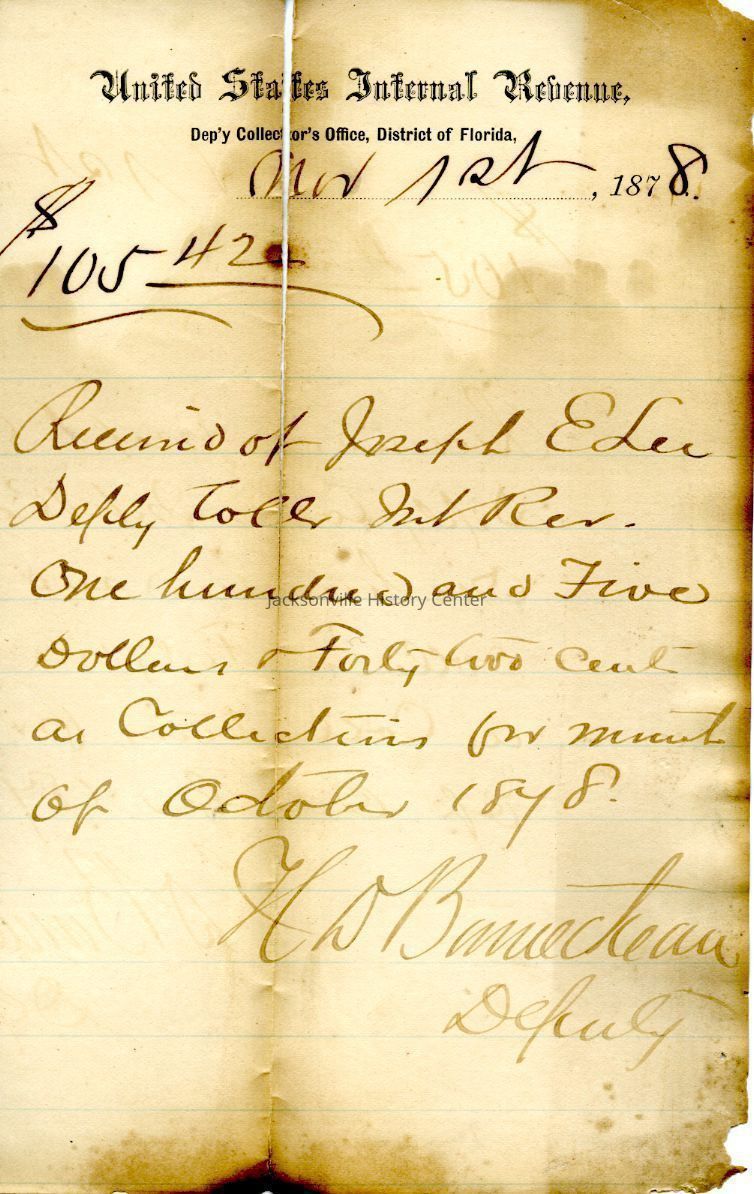 United States Internal Revenue,
Dep'y Collector's Office, District of Florida,
Nov 1st, 1878.
$105 42
Received of Joseph E Lee
Depty Coller Int Rev.
One hundred and Five
Dollars & Forty two cent
as Collections for month
of October 1878.
H D
Deputy
Jacksonville History Center